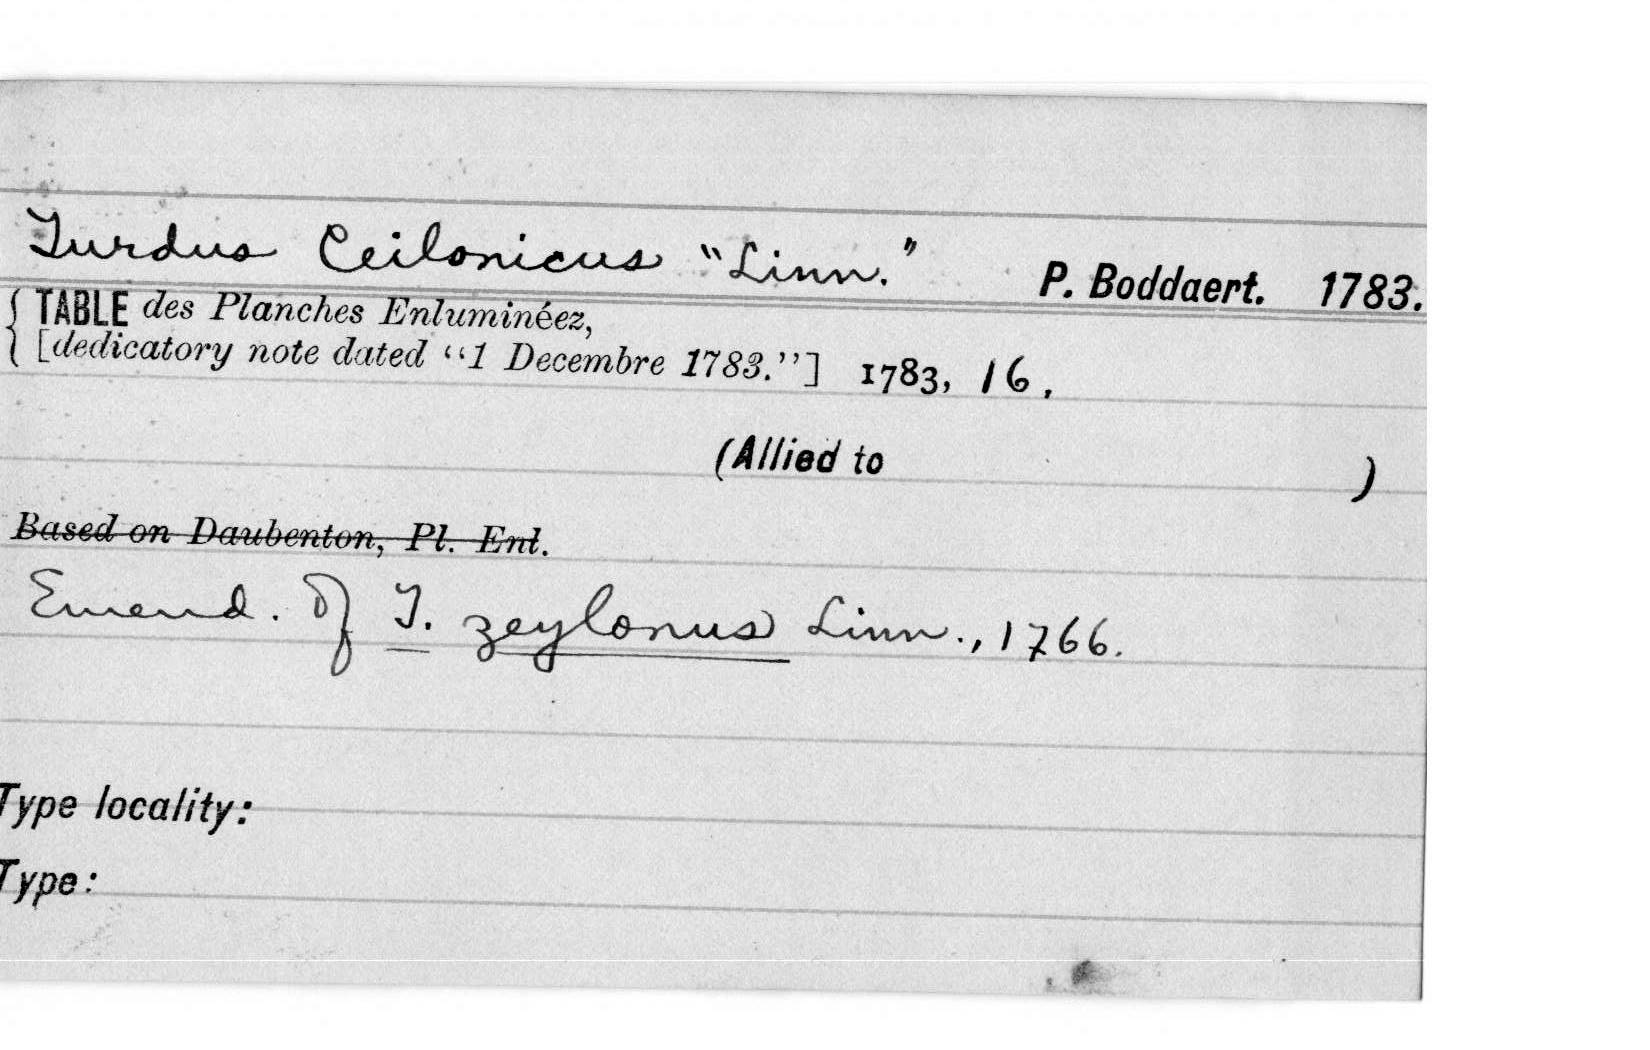 Turdus Ceilonicus "Linn." P. Boddaert. 1783.
TABLE des Planches Enluminéez,
[dedicatory note dated "1 Decembre 1783."] 1783, 16.
(Allied to )
Based on Daubenton, Pl. Enl.
Emend. of T. zeylonus Linn., 1766.
Type locality:
Type: